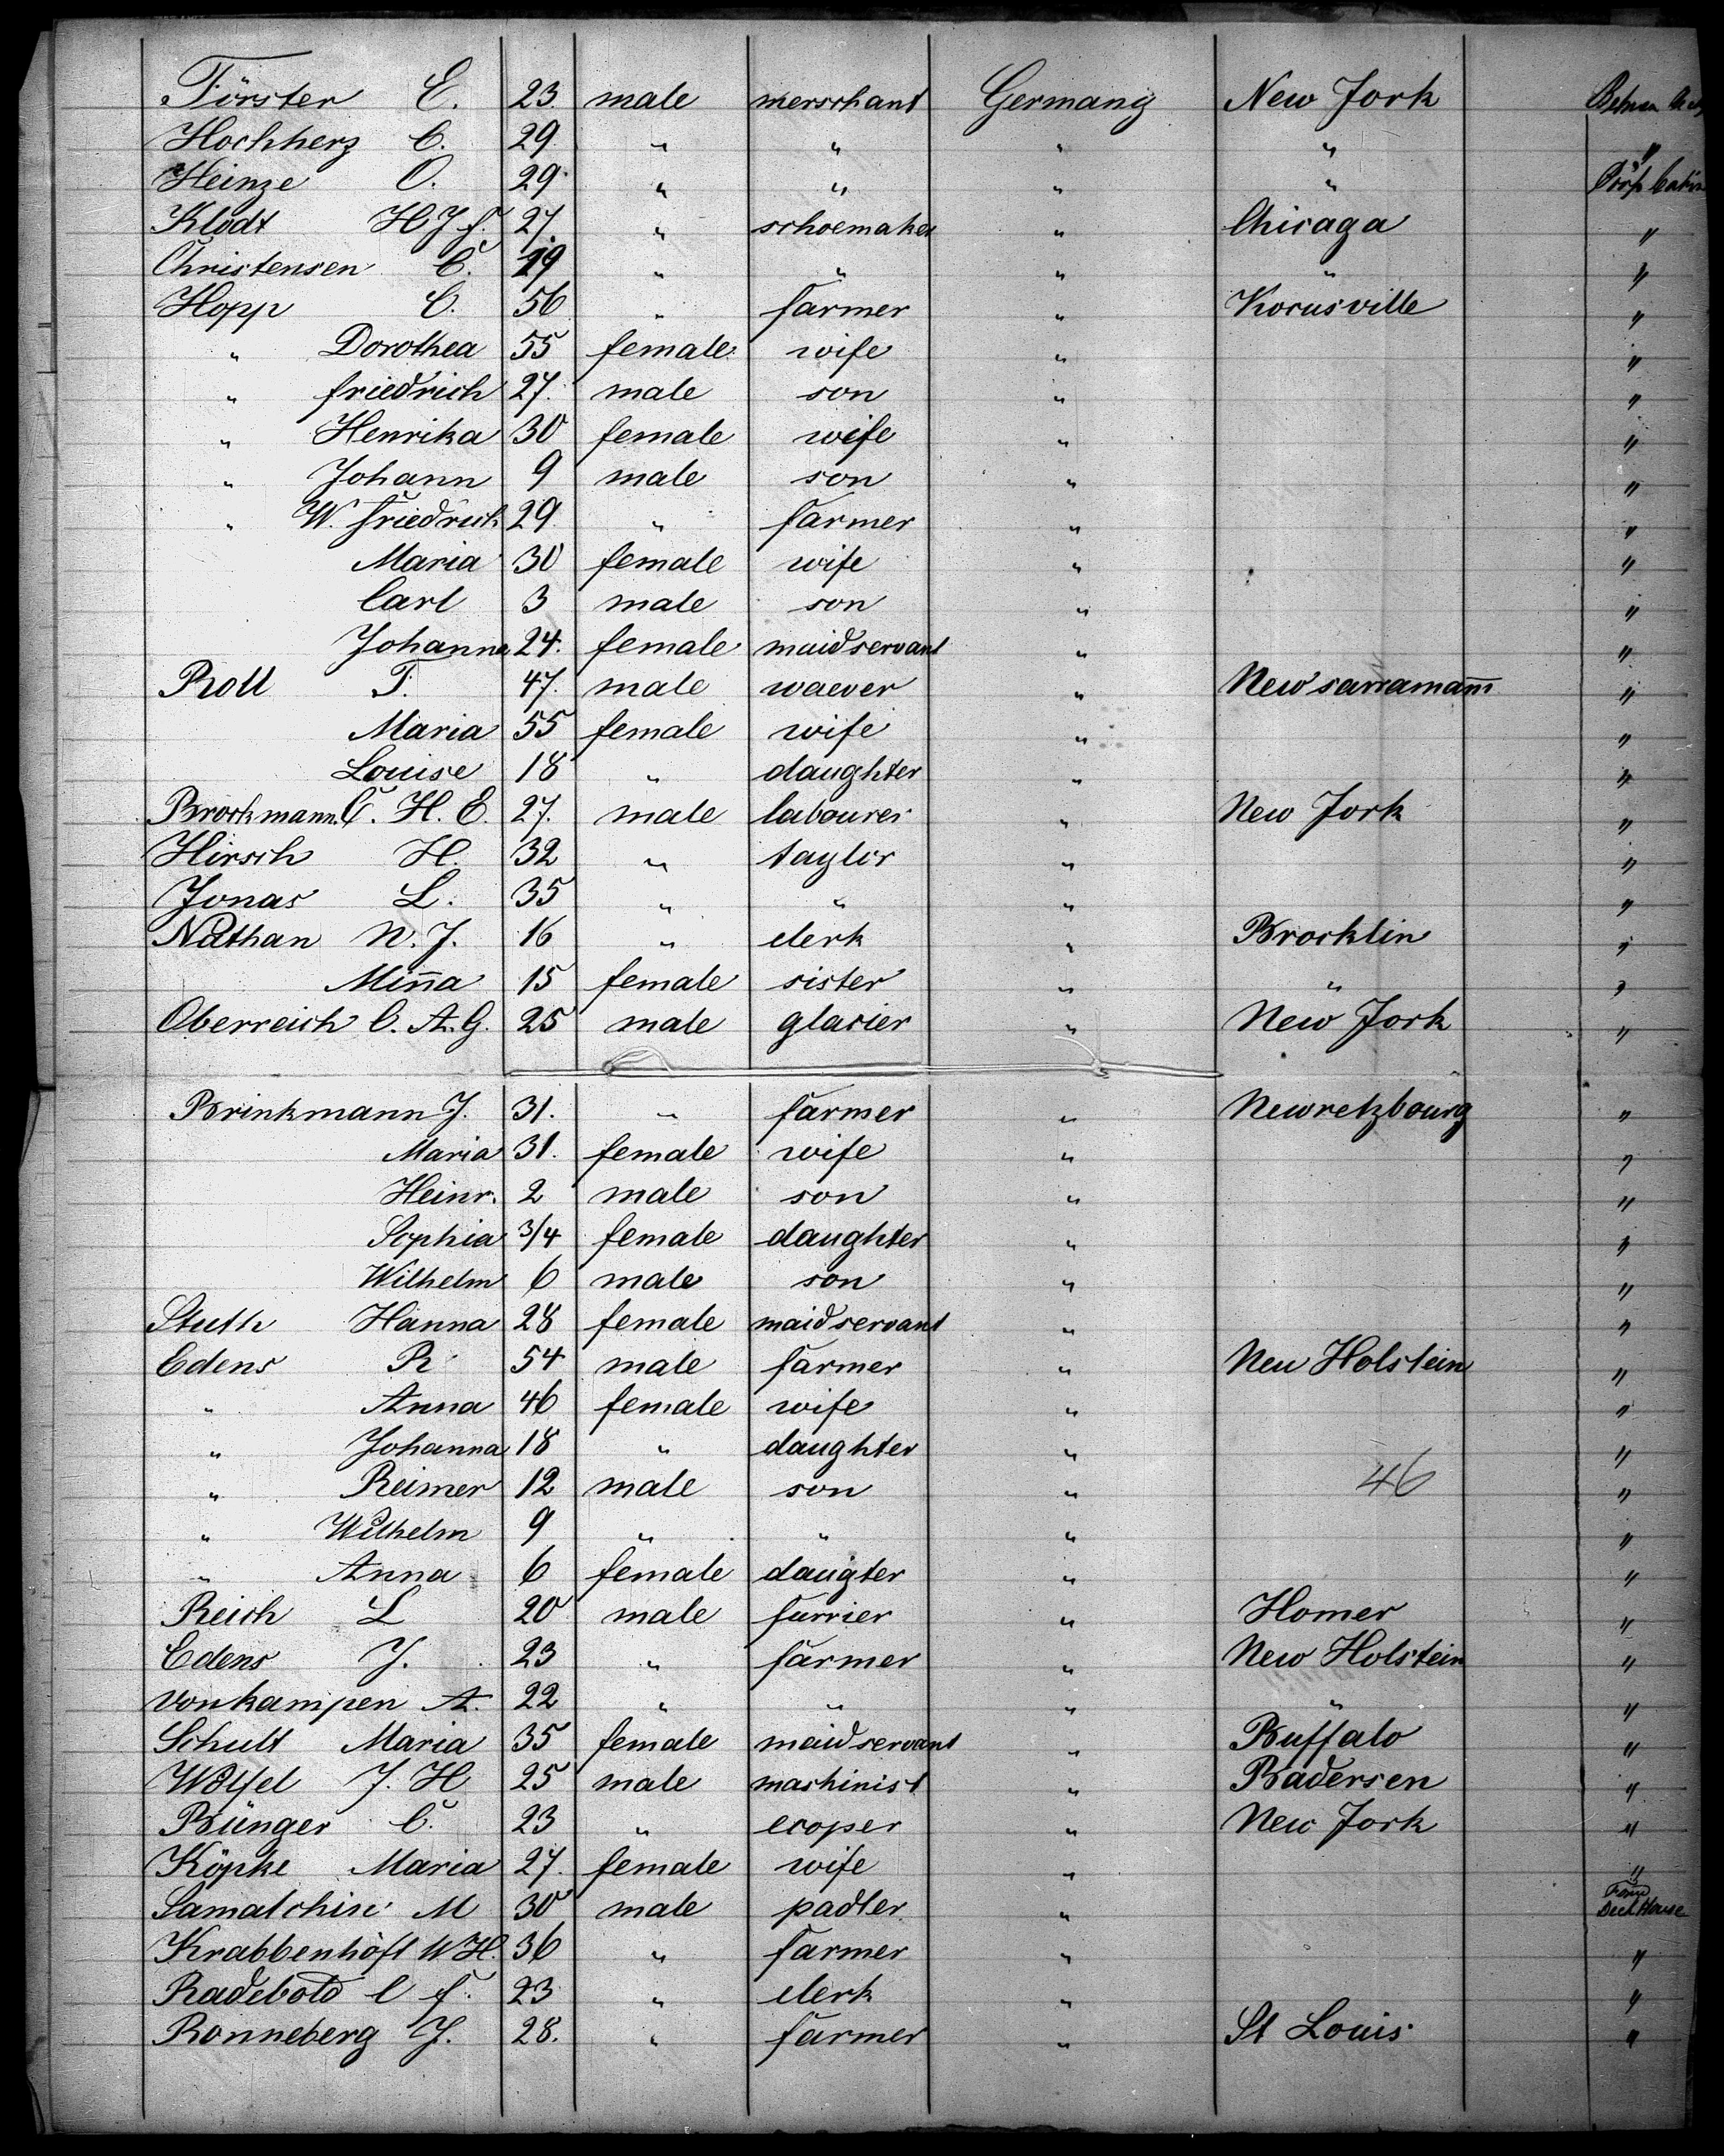 Förster E. 23 male merschant Germang New Jork
Hochherz C. 29 " " " " "
Heinze O. 29 " " " "
Klodt H J f. 27. " schoemaker " Chicaga "
Christensen C. 29 " " " " "
Hopp C. 56 " farmer " Korusville "
" Dorothea 55 female wife " "
" friedrich 27. male son " "
" Henrika 30 female wife " "
" Johann 9 male son " "
" W. friedrich 29 " farmer " "
Maria 30 female wife " "
Carl 3 male son " "
Johanna 24. female maidservant " "
Roll T. 47. male waever " "
Maria 55 female wife " "
Louise 18 " daughter " "
Brockmann C. H. E. 27. male labourer " New Jork "
Hirsch H. 32 " taylor " "
Jonas L. 35 " " " "
Nathan N. J. 16 " clerk " Brocklin "
Miña 15 female sister " " "
Oberreich C. A. G. 25 male glacier " New Jork "
Brinkmann J. 31. " farmer " Newretzbourg "
Maria 31. female wife " "
Heinr. 2 male son " "
Sophia 3/4 female daughter " "
Wilhelm 6 male son " "
Stuth Hanna 28 female maidservant " "
Edens R 54 male farmer " New Holstein "
" Anna 46 female wife " "
" Johanna 18 " daughter " "
" Reimer 12 male son " 46 "
" Wilhelm 9 " " " "
" Anna 6 female daugter " "
Reich L 20 male furrier " Homer "
Edens J. 23 " farmer " New Holstein "
vonkampen A. 22 " " " " "
Schult Maria 35 female maidservant " Buffalo "
Wölfel J. H 25 male mashinist " Badersen "
Bünger C. 23 " coper " New Jork "
Köpke Maria 27. female wife " "
M 30 male padler " From Deck House
Krabbenhöft W H. 36 " farmer " "
Radebold C f. 23 " clerk " "
Ronneberg J. 28. " farmer " St Louis "